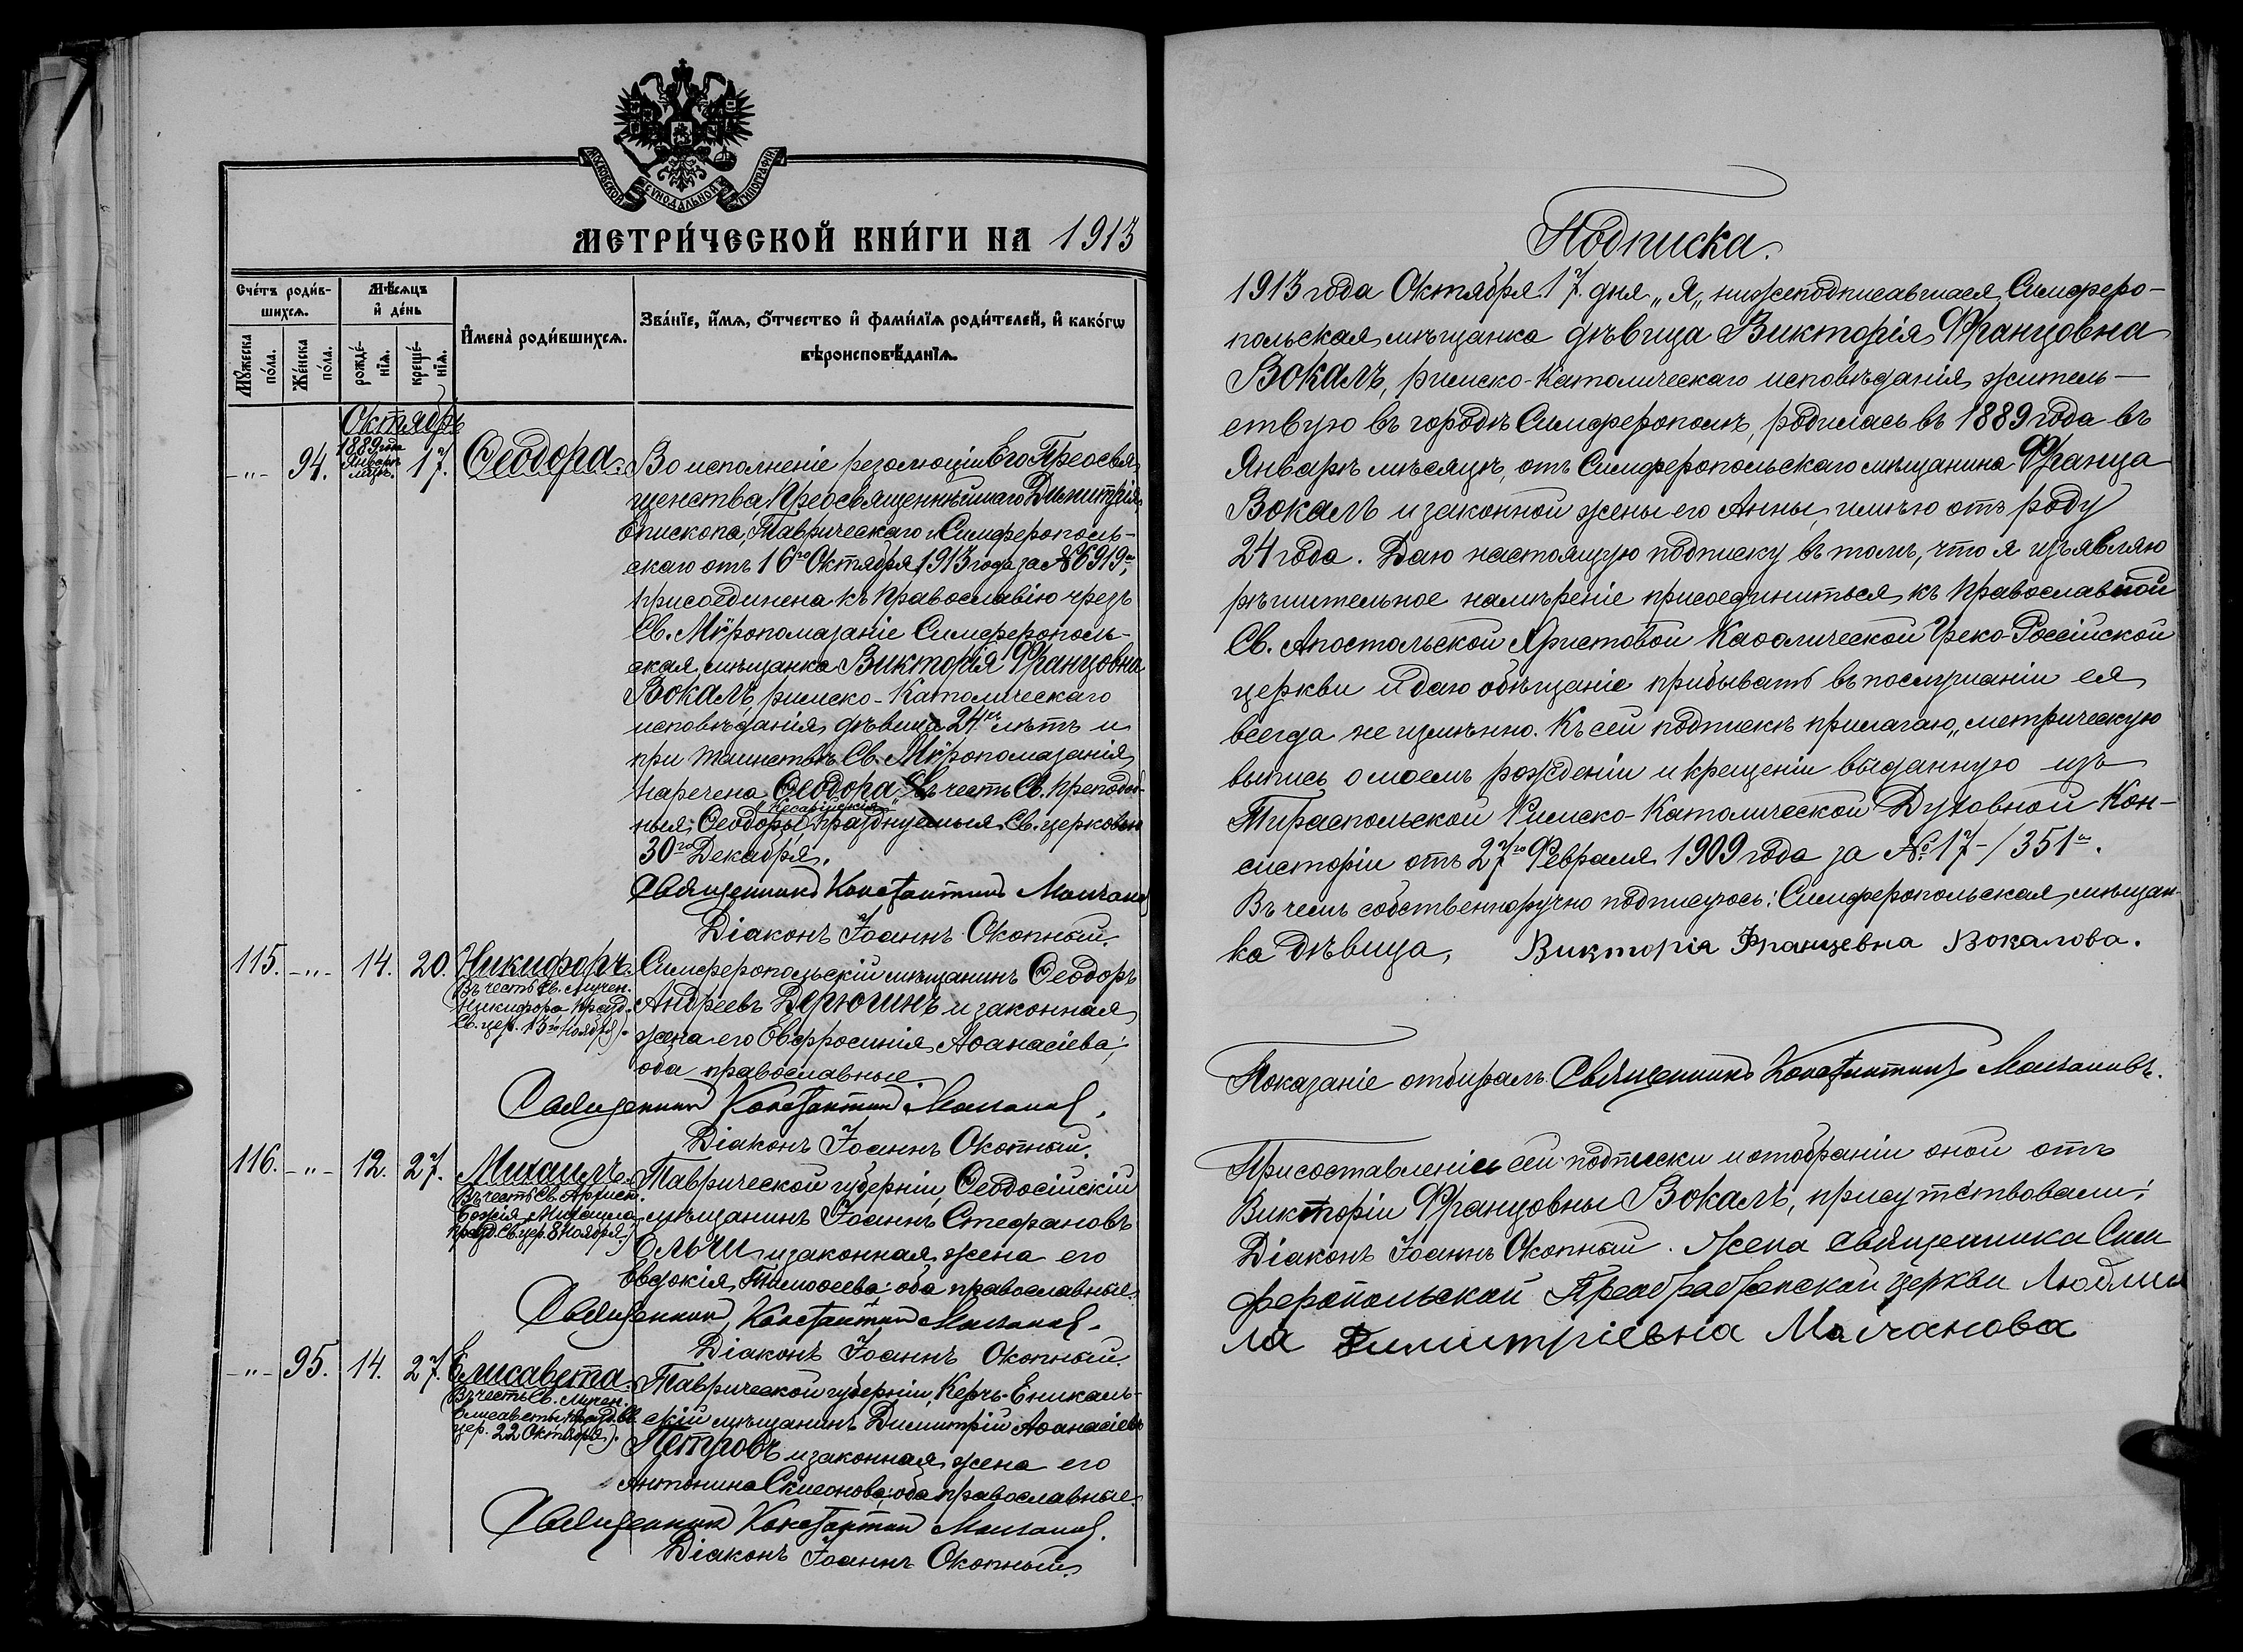 МОСКОВСКОЙ СѴНОДАЛЬНОЙ ТИПОГРАФІИ
МЕТРИ́ЧЕСКОЙ КНИ́ГИ НА 1913
Сче́тъ роди́в-
шихсѧ.
Мѣ́сѧцъ
и҆ де́нь
И҆мена̀ роди́вшихсѧ.
Зва́нїе, и҆́мѧ, ѻ҆́тчество и҆ фами́лїѧ роди́телей, и҆ како́гѡ
вѣроисповѣ́данїѧ.
Мꙋ́жеска по́ла.
Же́нска по́ла.
рожде́-
нїѧ.
креще́-
нїѧ.
Октябрь
-"- 94. 1889 года Январь мцъ. 17. Ѳеодора. Во исполненіе резолюціи Его Преосвя
щенства, Преосвященнѣйшаго Димитрія
Епископа, Таврическаго и Симферополь-
скаго отъ 16го Октября 1913 года за № 6919м,
присоединена къ Православію чрезъ
Св. Мѵропомазаніе Симферополь-
ская мѣщанка Викторія Францовна
Вокалъ, римско-Католическаго
исповѣданія, дѣвица 24хъ лѣтъ и
при таинствѣ Св. Мѵропомазанія
наречена Ѳеодора въ честь Св. Преподоб-
"Кесарійскія"
ныя Ѳеодоры, празднуемыя Св. церковью
30го Декабря.
Священникъ Константинъ Молчановъ
Діаконъ Іоаннъ Окопный.
115. -"- 14. 20. Никифоръ. Симферопольскій мѣщанинъ Ѳеодоръ
Въ честь Св. Мучен.
Никифора празд.
Св. цер. 13го Ноября).
Андреевъ Дерюгинъ и законная
жена его Евфросинія Аѳанасіева;
оба православные.
Священникъ Константинъ Молчановъ.
Діаконъ Іоаннъ Окопный.
116. -"- 12. 27. Михаилъ. Таврической губерніи, Ѳеодосійскій
Въ честь Св. Архист.
Божія Михаила
празд. Св. цер. 8 Ноября).
мѣщанинъ Іоаннъ Стефановъ
и законная жена его
Евдокія Тимоѳеева; оба православные.
Священникъ Константинъ Молчановъ.
Діаконъ Іоаннъ Окопный.
-"- 95. 14. 27. Елисавета. Таврической губерніи, Керчь-Еникаль-
Въ честь Св. Мучен.
Елисаветы празд. Св.
цер. 22 Октября).
скій мѣщанинъ Димитрій Аѳанасіевъ
Петровъ и законная жена его
Антонина Симеонова; оба православные.
Священникъ Константинъ Молчановъ.
Діаконъ Іоаннъ Окопный.
Подписка.
1913 года Октября 17. дня „Я„ нижеподписавшаяся, Симферо-
польская мѣщанка дѣвица Викторія Францовна
Вокалъ, римско-Католическаго исповѣданія, житель-
ствую въ городѣ Симферополѣ, родилась въ 1889 года въ
Январѣ мѣсяцѣ, отъ Симферопольскаго мѣщанина Франца
Вокалъ и законной жены его Анны, имѣю отъ роду
24 года. Даю настоящую подписку въ томъ, что я изъявляю
рѣшительное намѣреніе присоединиться къ Православной
Св. Апостольской Христовой Каѳолической Греко-Россійской
церкви и даю обѣщаніе прибывать въ послушаніи ея
всегда не измѣнно. Къ сей подпискѣ прилагаю „метрическую
выпись о моемъ рожденіи и крещеніи выданную изъ
Тираспольской Римско-Католической Духовной Кон-
систоріи отъ 27го Февраля 1909 года за № 17-/351м.
Въ чемъ собственноручно подписуюсь: Симферопольская мѣщан-
ка дѣвица, Викторія Францевна Вокалова.
Показаніе отбиралъ Священникъ Константинъ Молчановъ.
При составленіи сей подписки и отобраніи оной отъ
Викторіи Францовны Вокалъ, присутствовали:
Діаконъ Іоаннъ Окопный. Жена священника Сим
феропольской Преображенской церкви Людми
ла Димитріевна Молчанова